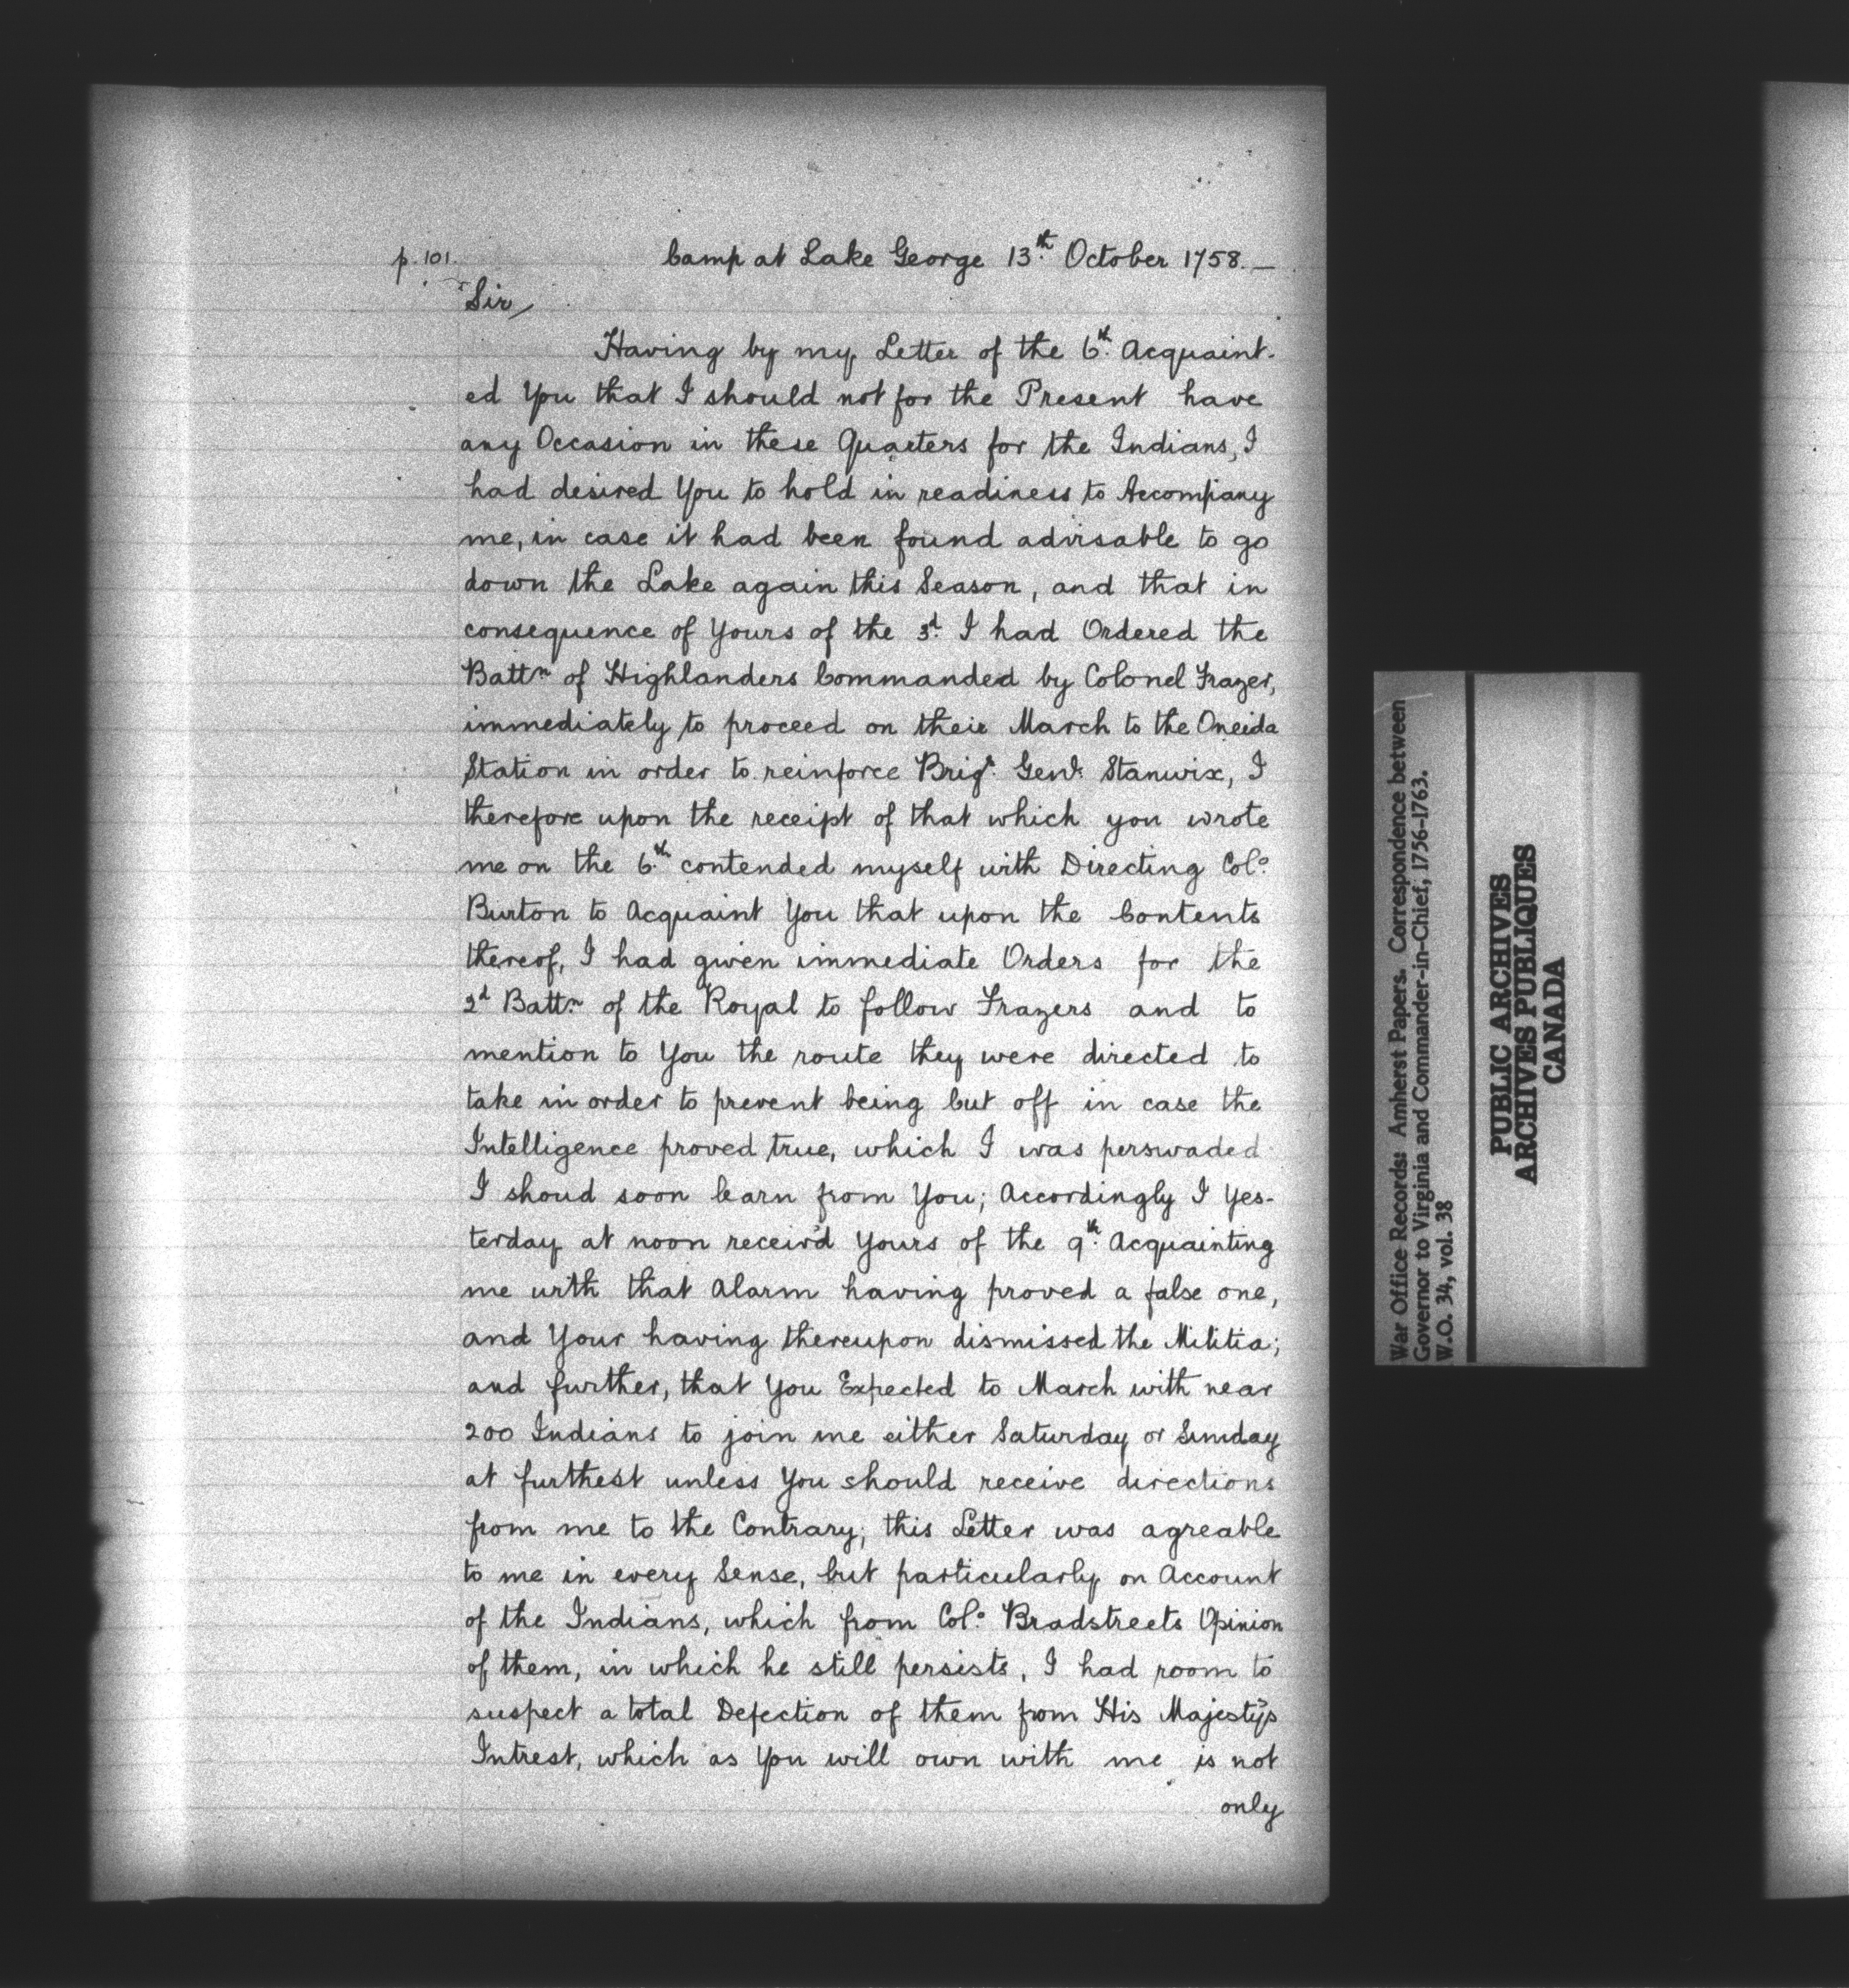 p. 101.
Camp at Lake George 13th October 1758.—
Sir,
Having by my Letter of the 6th Acquaint-
ed You that I should not for the Present have
any Occasion in these Quarters for the Indians, I
had desired You to hold in readiness to Accompany
me, in case it had been found advisable to go
down the Lake again this Season, and that in
consequence of Yours of the 3d I had Ordered the
Battn of Highlanders Commanded by Colonel Frazer,
immediately to proceed on their March to the Oneida
Station in order to reinforce Brigr Genl Stanwix, I
therefore upon the receipt of that which you wrote
me on the 6th contended myself with Directing Colo
Burton to Acquaint You that upon the Contents
thereof, I had given immediate Orders for the
2d Battn of the Royal to follow Frazers and to
mention to You the route they were directed to
take in order to prevent being Cut off in case the
Intelligence proved true, which I was perswaded
I shoud soon learn from You; Accordingly I Yes-
terday at noon receiv'd Yours of the 9th Acquainting
me with that Alarm having proved a false one,
and Your having thereupon dismissed the Militia;
and further, that You Expected to March with near
200 Indians to join me either Saturday or Sunday
at furthest unless You should receive directions
from me to the Contrary; this Letter was agreable
to me in every Sense, but particularly on Account
of the Indians, which from Colo Bradstreets Opinion
of them, in which he still persists, I had room to
suspect a total Defection of them from His Majesty's
Intrest, which as You will own with me is not
only
War Office Records: Amherst Papers. Correspondence between
Governor to Virginia and Commander-in-Chief, 1756-1763.
W.O. 34, vol. 38
PUBLIC ARCHIVES
ARCHIVES PUBLIQUES
CANADA